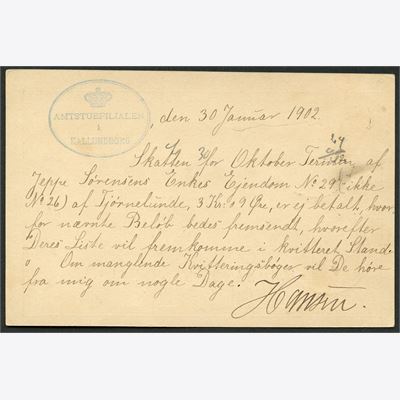 AMTSTUEFILIALEN
i
KALLUNDBORG
, den 30 Januar 1902.
Skatten for Oktober Termin af
Jeppe Sørensens Enkes Ejendom No 29 (ikke
No 26) af Tjörnelunde, 3 Kr. 09 Øre, er ej betalt, hvor-
for nævnte Beløb bedes fremsendt, hvorefter
Deres Liste vil fremkomme i kvitteret Stand.
Om manglende Kvitteringsbøger vil De høre
fra mig om nogle Dage.
Hansen.